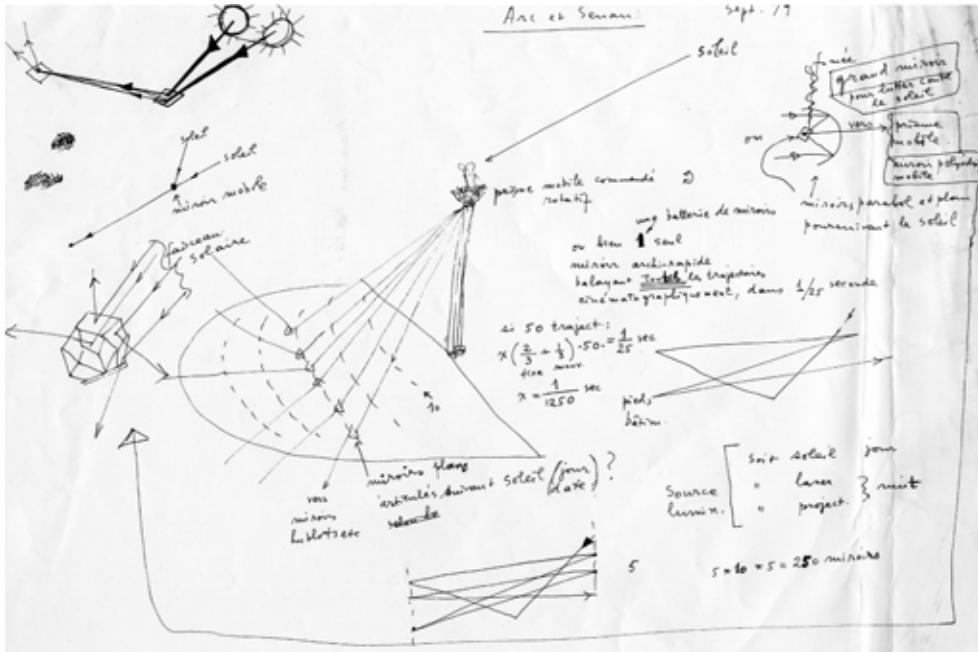 Arc et Senans
Sept. 79
soleil
fumée
grand miroir
pour lutter contre
le soleil
ou
vers
prisme
mobile
miroir polyèdre
mobile
miroirs parabol et plan
poursuivant le soleil
soleil
soleil
miroir mobile
faisceau
solaire
prisme mobile commandé
rotatif
une batterie de miroirs
ou bien 1 seul
miroir archi-rapide
balayant toutes les trajectoires
cinématographiquement, dans 1/25 seconde
si 50 traject:
x(2/3 + 1/3)·50 = 1/25 sec
x = 1/1250 sec
10
pieds
bâtim.
miroirs plans
articulés suivant soleil (jour d'axe)?
vers
miroirs
hublots etc
Source
lumin.
soit soleil jour
" laser
" project. } nuit
5
5 × 10 × 5 = 250 miroirs